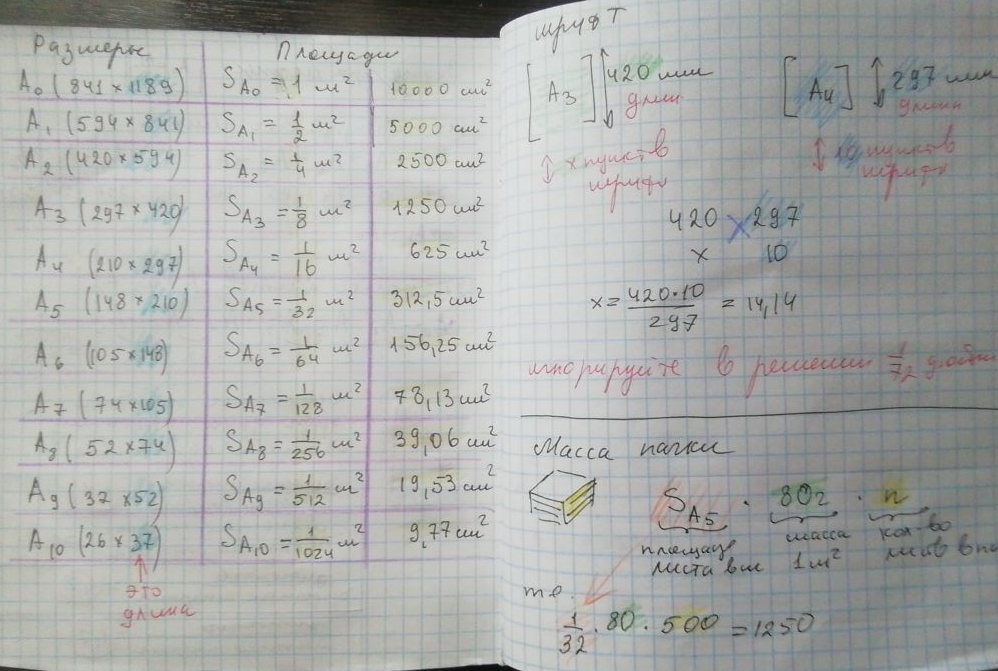 Размеры Площади
A₀ (841 × 1189) S_A₀ = 1 м² 10000 см²
A₁ (594 × 841) S_A₁ = 1/2 м² 5000 см²
A₂ (420 × 594) S_A₂ = 1/4 м² 2500 см²
A₃ (297 × 420) S_A₃ = 1/8 м² 1250 см²
A₄ (210 × 297) S_A₄ = 1/16 м² 625 см²
A₅ (148 × 210) S_A₅ = 1/32 м² 312,5 см²
A₆ (105 × 148) S_A₆ = 1/64 м² 156,25 см²
A₇ (74 × 105) S_A₇ = 1/128 м² 78,13 см²
A₈ (52 × 74) S_A₈ = 1/256 м² 39,06 см²
A₉ (37 × 52) S_A₉ = 1/512 м² 19,53 см²
A₁₀ (26 × 37) S_A₁₀ = 1/1024 м² 9,77 см²
это
длина
шрифт
[A₃] 420 мм [A₄] 297 мм
длин длина
x пунктов 10 пунктов
шрифт шрифт
420 297
x 10
x = 420·10/297 = 14,14
игнорируйте в решении 1/72
Масса пачки
S_A₅ · 80г · n
площадь масса кол-во
листа в м 1 м² листов в па
т.е.
1/32 · 80 · 500 = 1250